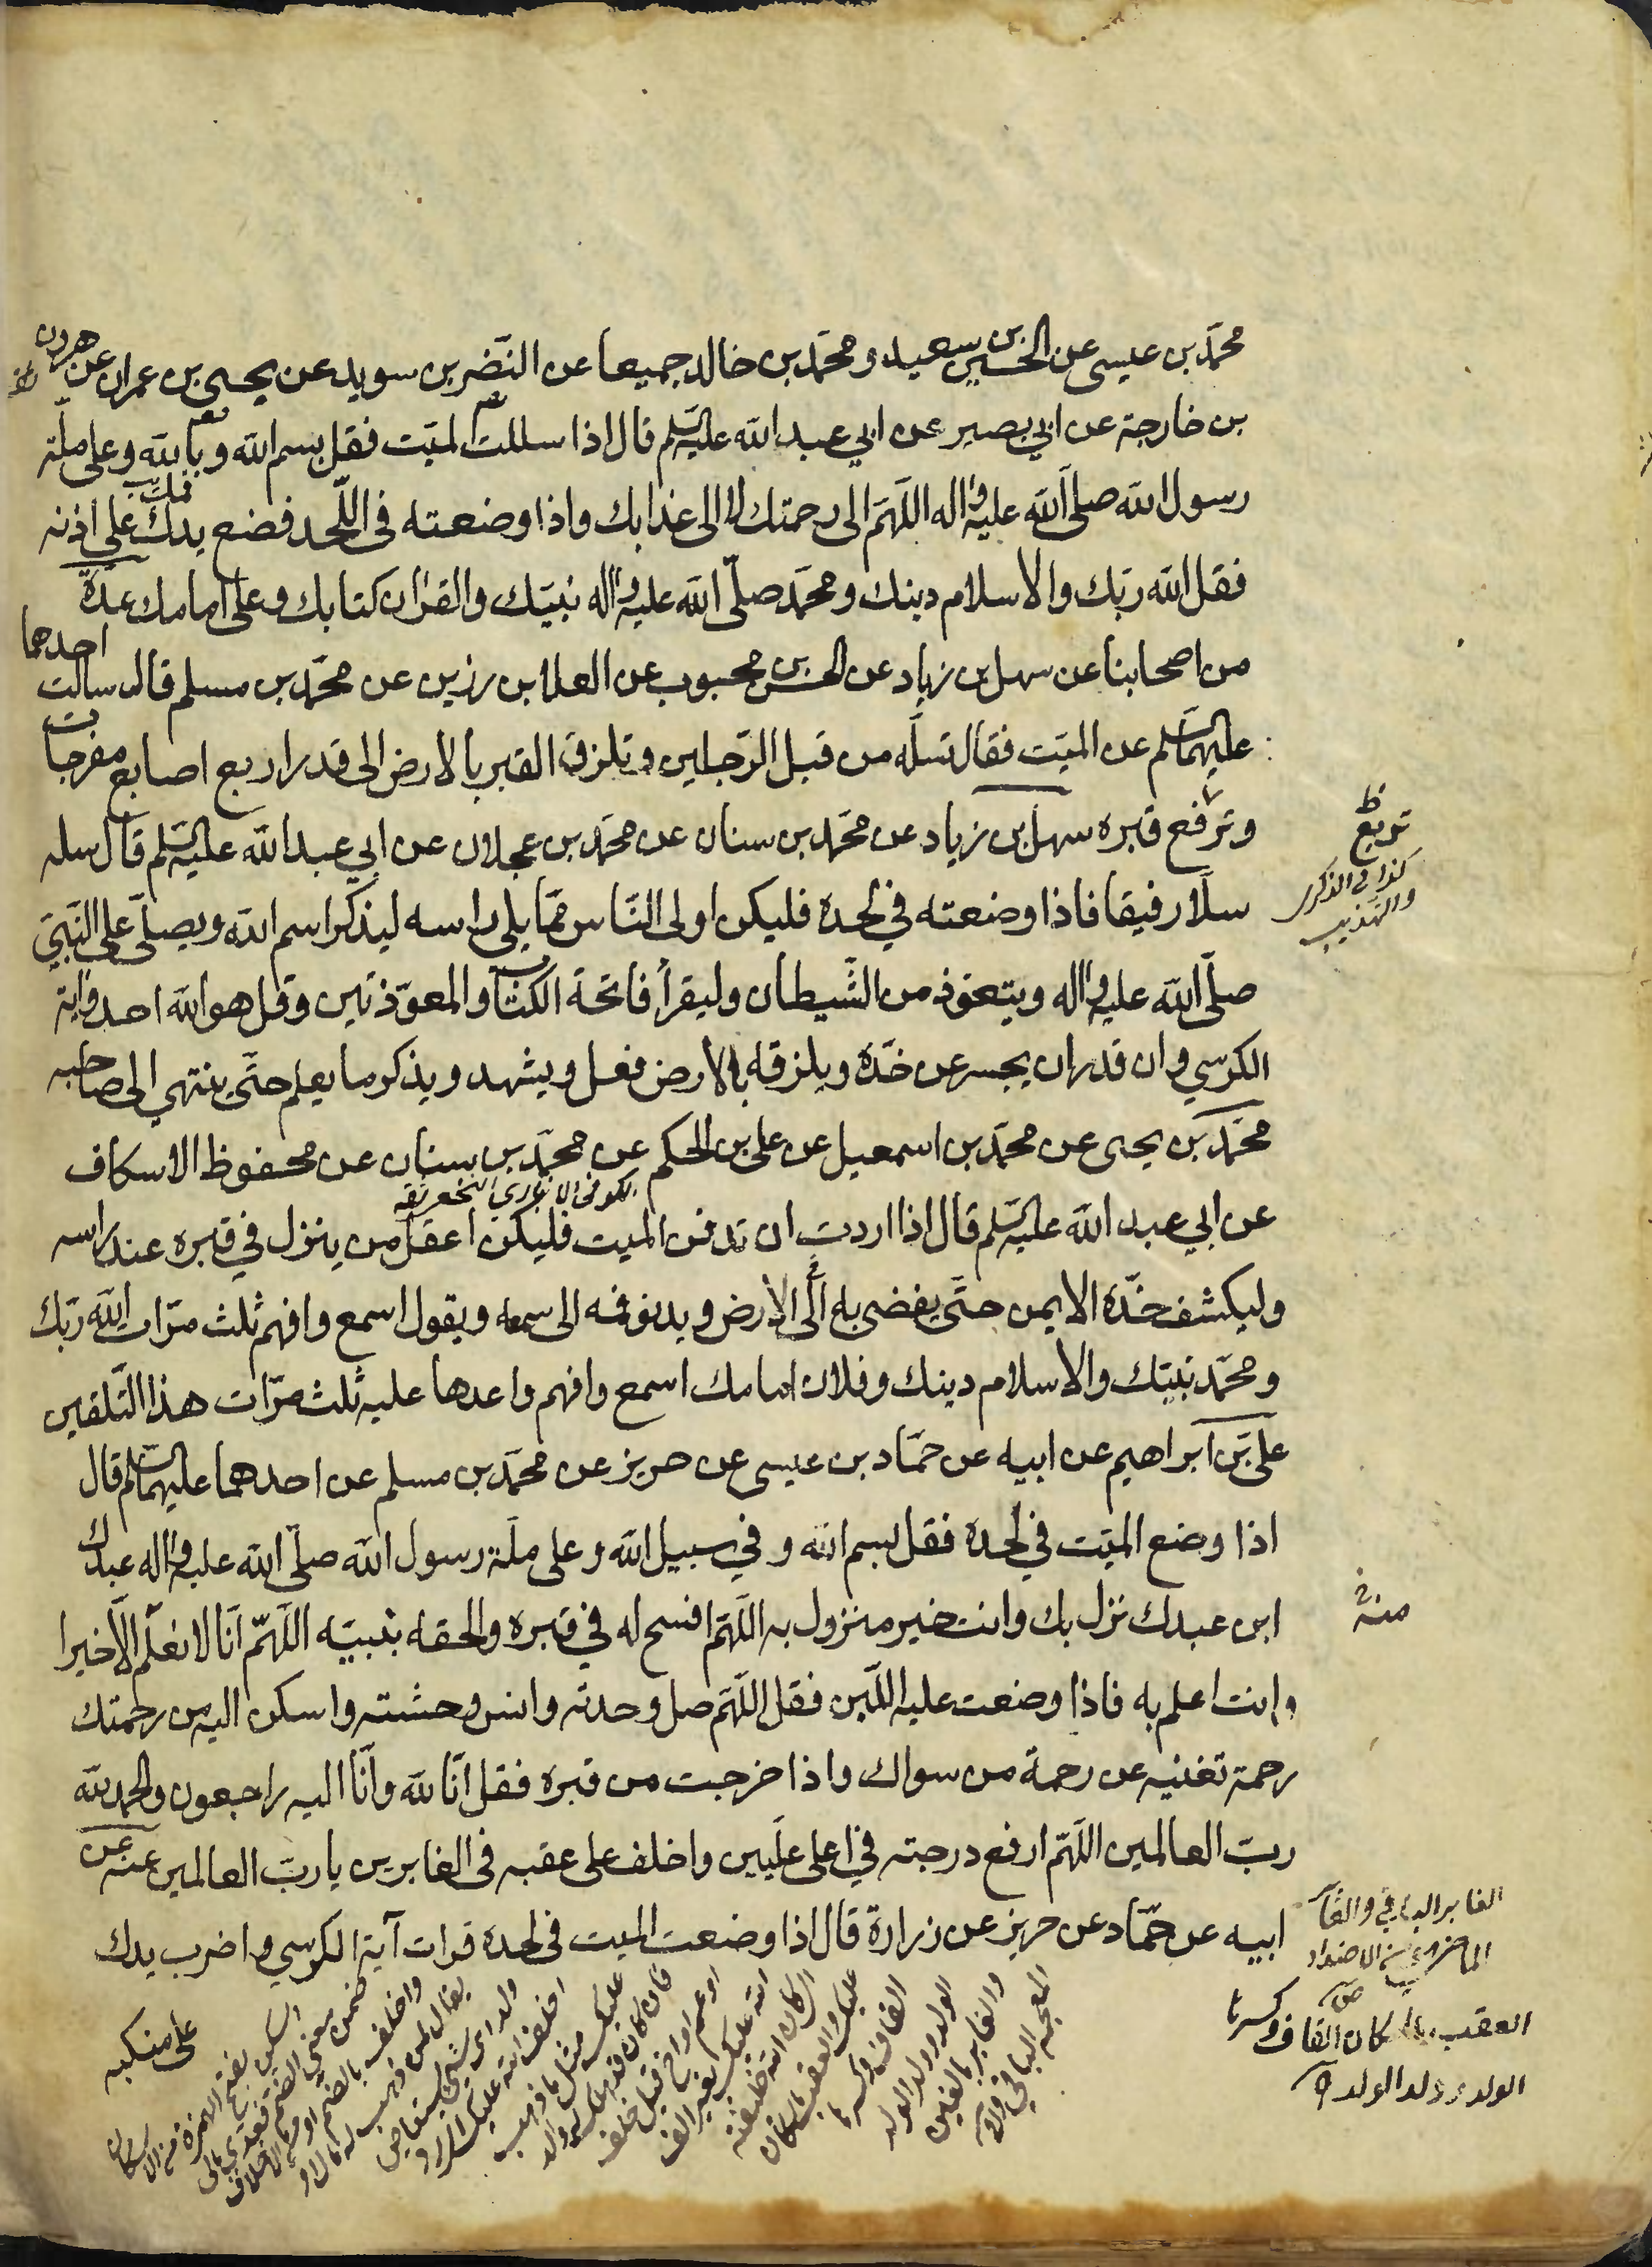 محمّد بن عيسى عن الحسين بن سعيد ومحمّد بن خالد جميعا عن النّضر بن سويد عن يحيى بن عمران عن هرون
بن خارجة عن ابي بصير عن ابي عبد الله عليه السّلم قال اذا سللت الميّت فقل بسم الله وبالله وعلى ملّة
رسول الله صلّى الله عليه واله اللّهمّ الى رحمتك لا الى عذابك واذا وضعته في اللّحد فضع يدك على اذنه
فقل الله ربّك والاسلام دينك ومحمّد صلّى الله عليه واله نبيّك والقران كتابك وعلى امامك عدّة
من اصحابنا عن سهل بن زياد عن الحسن بن محبوب عن العلا بن رزين عن محمّد بن مسلم قال سالت احدهما
عليهما السّلم عن الميّت فقال تسلّه من قبل الرّجلين وتلزق القبر بالارض الى قدر اربع اصابع مفرجات
وترفع قبره سهل بن زياد عن محمّد بن سنان عن محمّد بن عجلان عن ابي عبد الله عليه السّلم قال سله
سلّا رفيقا فاذا وضعته في لحده فليكن اولى النّاس ممّا يلي راسه ليذكر اسم الله ويصلّي على النّبيّ
صلّى الله عليه واله ويتعوّذ من الشّيطان وليقرأ فاتحة الكتاب والمعوّذتين وقل هو الله احد واية
الكرسي وان قدر ان يحسر عن خدّه ويلزقه بالارض فعل ويشهد ويذكر ما يعلم حتّى ينتهي الى صاحبه
محمّد بن يحيى عن محمّد بن اسمعيل عن علي بن الحكم عن محمّد بن سنان عن محفوظ الاسكاف
عن ابي عبد الله عليه السّلم قال اذا اردت ان تدفن الميت فليكن اعقل من ينزل في قبره عند راسه
وليكشف خدّه الايمن حتّى يفضي به الى الارض ويدنو فمه الى سمعه ويقول اسمع وافهم ثلث مرّات الله ربّك
ومحمّد نبيّك والاسلام دينك وفلان امامك اسمع وافهم واعدها عليه ثلث مرّات هذا التّلقين
علي بن ابراهيم عن ابيه عن حمّاد بن عيسى عن حريز عن محمّد بن مسلم عن احدهما عليهما السّلم قال
اذا وضع الميّت في لحده فقل بسم الله وفي سبيل الله وعلى ملّة رسول الله صلّى الله عليه واله عبدك
ابن عبدك نزل بك وانت خير منزول به اللّهمّ افسح له في قبره والحقه بنبيّه اللّهمّ انّا لا نعلم الّا خيرا
وانت اعلم به فاذا وضعت عليه اللّبن فقل اللّهمّ صل وحدته وانس وحشته واسكن اليه من رحمتك
رحمة تغنيه عن رحمة من سواك واذا خرجت من قبره فقل انّا لله وانّا اليه راجعون والحمد لله
ربّ العالمين اللّهمّ ارفع درجته في اعلى علّيين واخلف على عقبه في الغابرين يا ربّ العالمين عنه عن
ابيه عن حمّاد عن حريز عن زرارة قال اذا وضعت الميت في لحده قرات آية الكرسي واضرب يدك
على منكبه
تربّع
كذا في الذكرى
والتهذيب
منه
الغابر الباقي والغابر
الماضي وهو من الاضداد
العقب باسكان القاف وكسرها
الولد وولد الولد